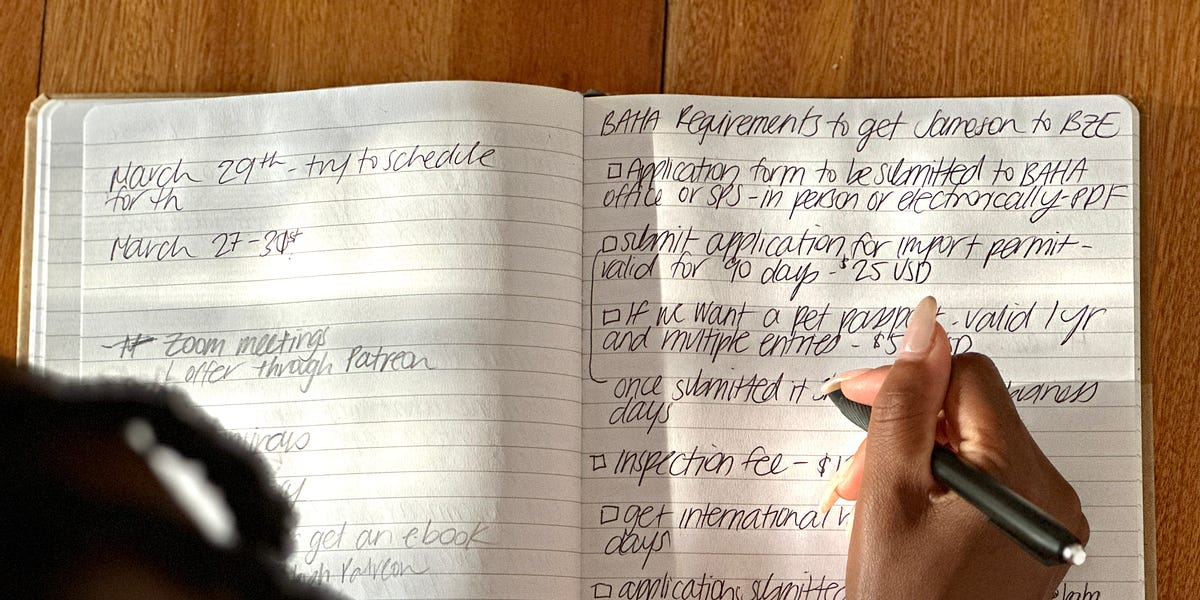 March 29th - try to schedule
for th
March 27-31st
Zoom meetings
I offer through Patreon
get an ebook
Patreon
BAHA Requirements to get Jameson to BZE
□ Application form to be submitted to BAHA
office or SPS - in person or electronically - PDF
□ submit application for import permit -
valid for 90 days - $25 USD
□ If we want a pet passport - valid 1yr
and multiple entries - $5
once submitted it
days
□ Inspection fee - $1
□ get international
days
□ applications submitted